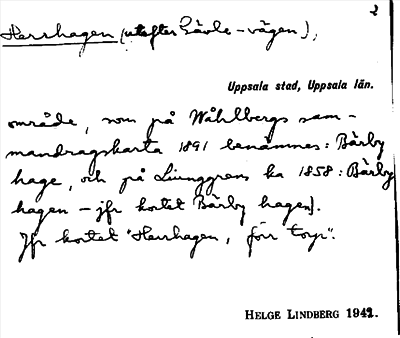 2
Herrhagen (utefter Gävle-vägen),
Uppsala stad, Uppsala län.
område, som på Wåhlbergs sam-
mandragskarta 1891 benämnes: Bärby
hage, och på Ljunggrens ka 1858: Bärby
hagen - jfr kortet Bärby hagen).
Jfr kortet "Herrhagen, förr torp".
HELGE LINDBERG 1942.